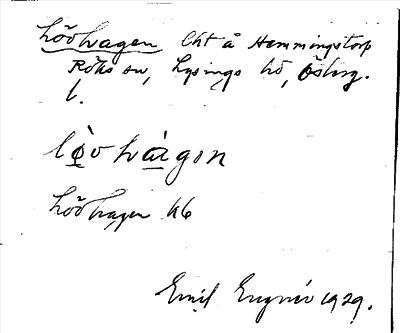 Lövhagen Cht å Hemmingstorp
Röks sn, Lysings hd, Österg.
l.
lø̀vhàgon
Lövhagen Kb
Emil Engnér 1929.